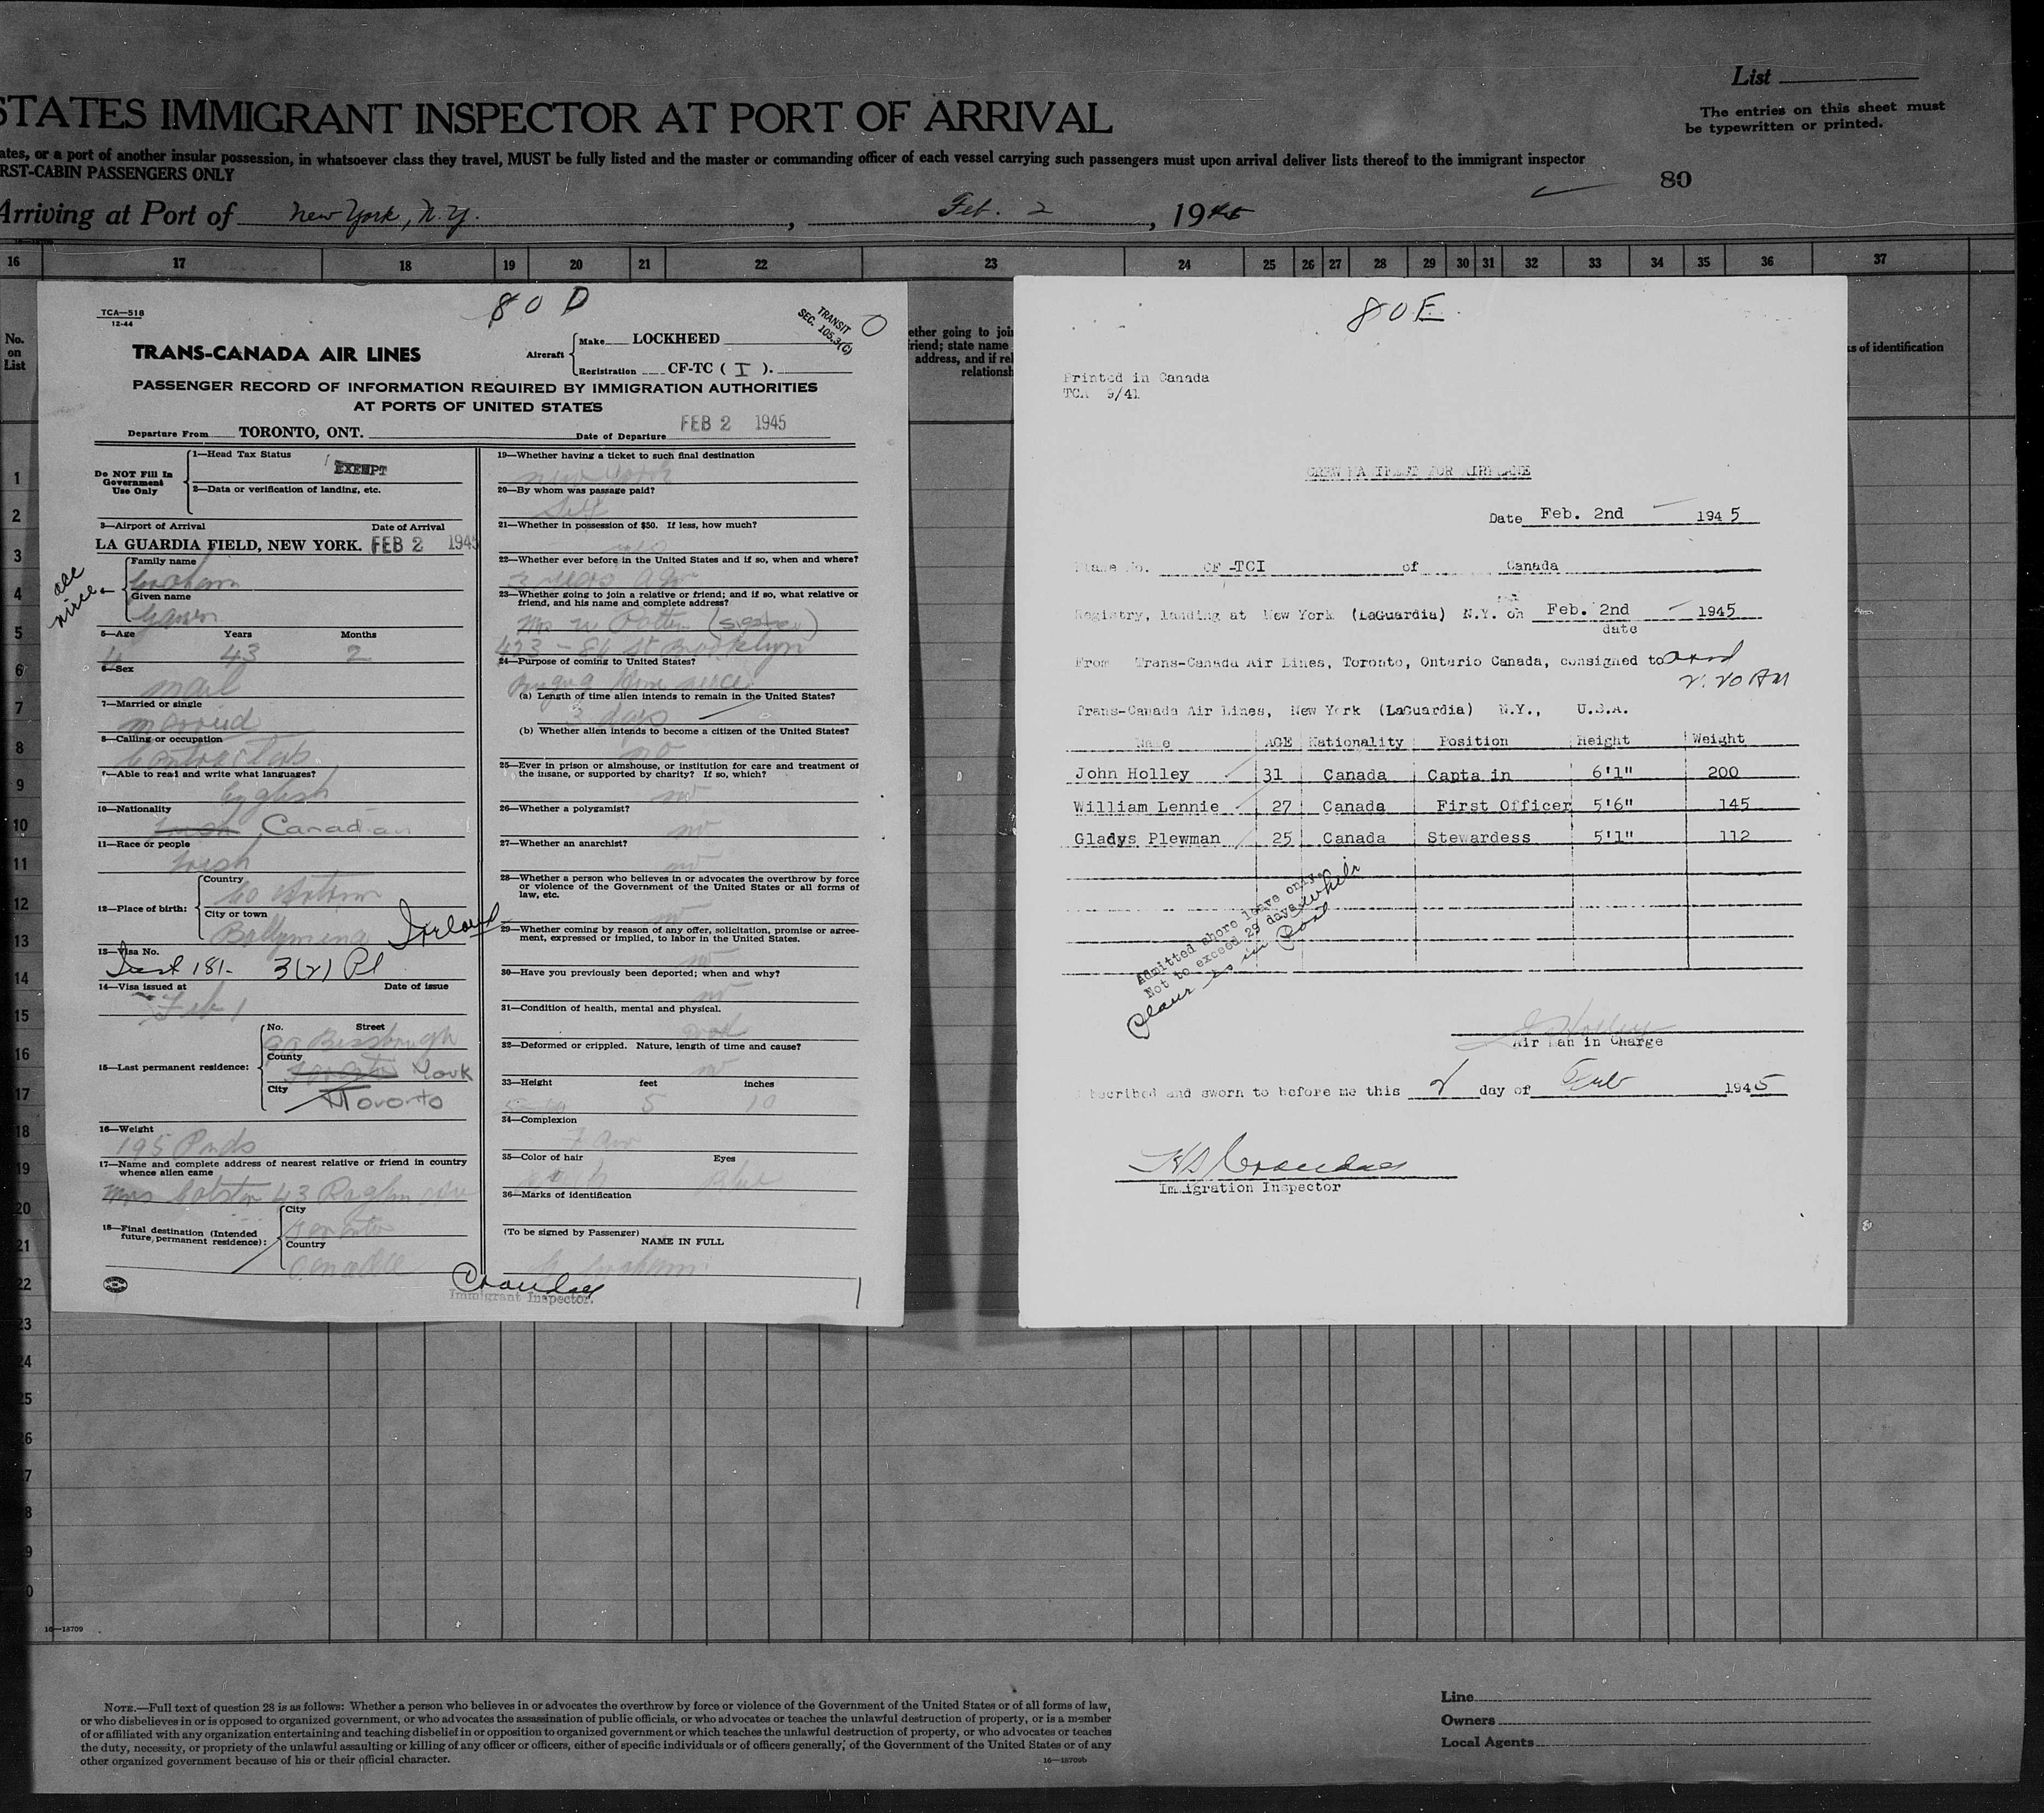 List
The entries on this sheet must
be typewritten or printed.
STATES IMMIGRANT INSPECTOR AT PORT OF ARRIVAL
ates, or a port of another insular possession, in whatsoever class they travel, MUST be fully listed and the master or commanding officer of each vessel carrying such passengers must upon arrival deliver lists thereof to the immigrant inspector
RST-CABIN PASSENGERS ONLY
80
Arriving at Port of New York, N.Y. , Feb. 2 , 1945
16 17 18 19 20 21 22 23 24 25 26 27 28 29 30 31 32 33 34 35 36 37
No.
on
List
ether going to joi
friend; state name
address, and if rel
relationsh
ks of identification
80 D
TCA—518
12-44
TRANSIT
SEC. 105.3(C)
TRANS-CANADA AIR LINES
Aircraft
Make LOCKHEED
Registration CF-TC ( I ).
PASSENGER RECORD OF INFORMATION REQUIRED BY IMMIGRATION AUTHORITIES
AT PORTS OF UNITED STATES
Departure From TORONTO, ONT.
Date of Departure FEB 2 1945
Do NOT Fill In
Government
Use Only
1—Head Tax Status
EXEMPT
2—Data or verification of landing, etc.
3—Airport of Arrival Date of Arrival
LA GUARDIA FIELD, NEW YORK. FEB 2 1945
Family name
Graham
Given name
5—Age Years Months
43 2
6—Sex
male
7—Married or single
married
8—Calling or occupation
9—Able to read and write what languages?
English
10—Nationality
Irish Canadian
11—Race or people
Irish
12—Place of birth:
Country
Co Antrim
City or town
Ballymena Ireland
13—Visa No.
181- 3(2)
14—Visa issued at Date of issue
Feb 1
15—Last permanent residence:
No. Street
County
Toronto York
City
Toronto
16—Weight
195 Pnds
17—Name and complete address of nearest relative or friend in country
whence alien came
Mrs 43 Raglan Ave
18—Final destination (Intended
future, permanent residence):
City
Toronto
Country
Canada
19—Whether having a ticket to such final destination
New York
20—By whom was passage paid?
Self
21—Whether in possession of $50. If less, how much?
yes
22—Whether ever before in the United States and if so, when and where?
3 years ago
23—Whether going to join a relative or friend; and if so, what relative or
friend, and his name and complete address?
Mrs (sister)
423 - 86 St Brooklyn
24—Purpose of coming to United States?
(a) Length of time alien intends to remain in the United States?
3 days
(b) Whether alien intends to become a citizen of the United States?
no
25—Ever in prison or almshouse, or institution for care and treatment of
the insane, or supported by charity? If so, which?
no
26—Whether a polygamist?
no
27—Whether an anarchist?
no
28—Whether a person who believes in or advocates the overthrow by force
or violence of the Government of the United States or all forms of
law, etc.
no
29—Whether coming by reason of any offer, solicitation, promise or agree-
ment, expressed or implied, to labor in the United States.
no
30—Have you previously been deported; when and why?
no
31—Condition of health, mental and physical.
good
32—Deformed or crippled. Nature, length of time and cause?
no
33—Height feet inches
5 10
34—Complexion
Fair
35—Color of hair Eyes
Blue
36—Marks of identification
(To be signed by Passenger)
NAME IN FULL
G. Graham
Immigrant Inspector.
80 E
Printed in Canada
TCA 9/41
CREW MANIFEST FOR AIRPLANE
Date Feb. 2nd 1945
Plane No. CF-TCI of Canada
Registry, landing at New York (LaGuardia) N.Y. on Feb. 2nd 1945
date
From Trans-Canada Air Lines, Toronto, Ontario Canada, consigned to
2.20 AM
Trans-Canada Air Lines, New York (LaGuardia) N.Y., U.S.A.
Name AGE Nationality Position Height Weight
John Holley 31 Canada Captain 6'1" 200
William Lennie 27 Canada First Officer 5'6" 145
Gladys Plewman 25 Canada Stewardess 5'1" 112
Admitted shore leave only.
Not to exceed 29 days while
plane is in Port
J. Holley
Air Man in Charge
scribed and sworn to before me this 2 day of Feb 1945
Immigration Inspector
1
2
3
4
5
6
7
8
9
10
11
12
13
14
15
16
17
18
19
20
21
22
23
24
25
26
7
8
9
0
16—18709
NOTE.—Full text of question 28 is as follows: Whether a person who believes in or advocates the overthrow by force or violence of the Government of the United States or of all forms of law,
or who disbelieves in or is opposed to organized government, or who advocates the assassination of public officials, or who advocates or teaches the unlawful destruction of property, or is a member
of or affiliated with any organization entertaining and teaching disbelief in or opposition to organized government or which teaches the unlawful destruction of property, or who advocates or teaches
the duty, necessity, or propriety of the unlawful assaulting or killing of any officer or officers, either of specific individuals or of officers generally, of the Government of the United States or of any
other organized government because of his or their official character.
16—18709b
Line
Owners
Local Agents